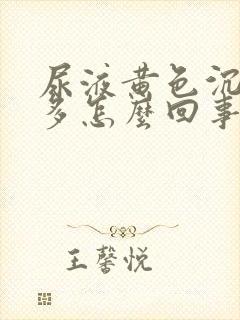 尿液黄色沉
多怎麼回事
王馨悦